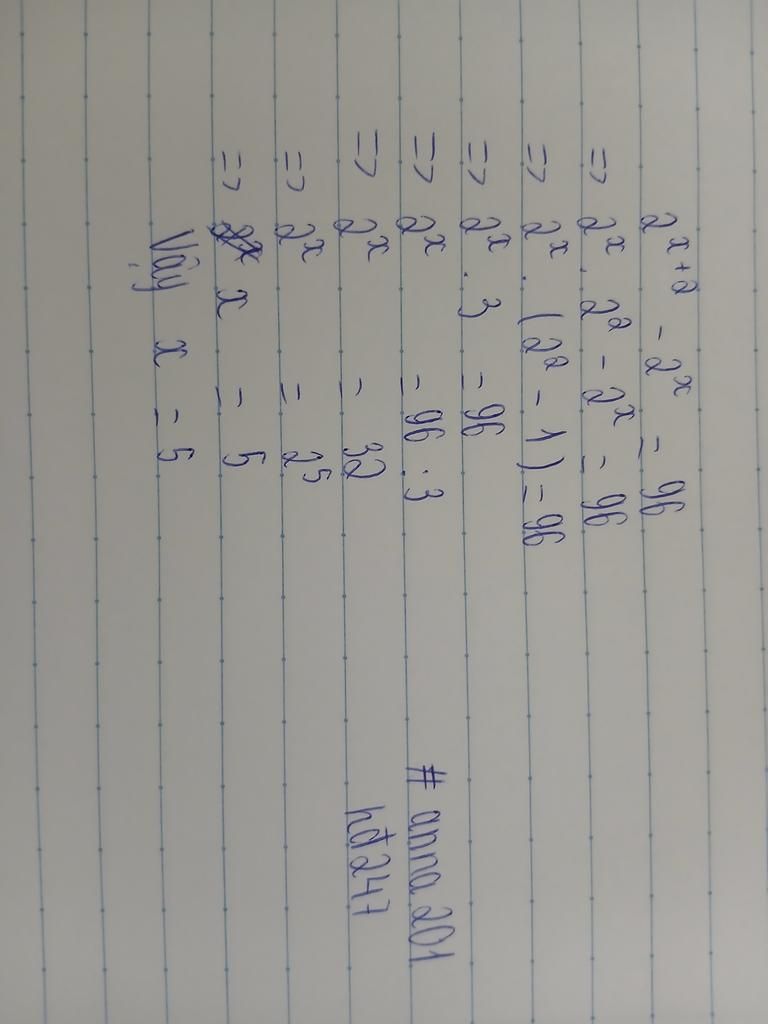 2^{x+2} - 2^x = 96
=> 2^x . 2^2 - 2^x = 96
=> 2^x . (2^2 - 1) = 96
=> 2^x . 3 = 96
=> 2^x = 96 . 3
=> 2^x = 32
=> 2^x = 2^5
=> x = 5
Vậy x = 5
# anna 201
hđ247